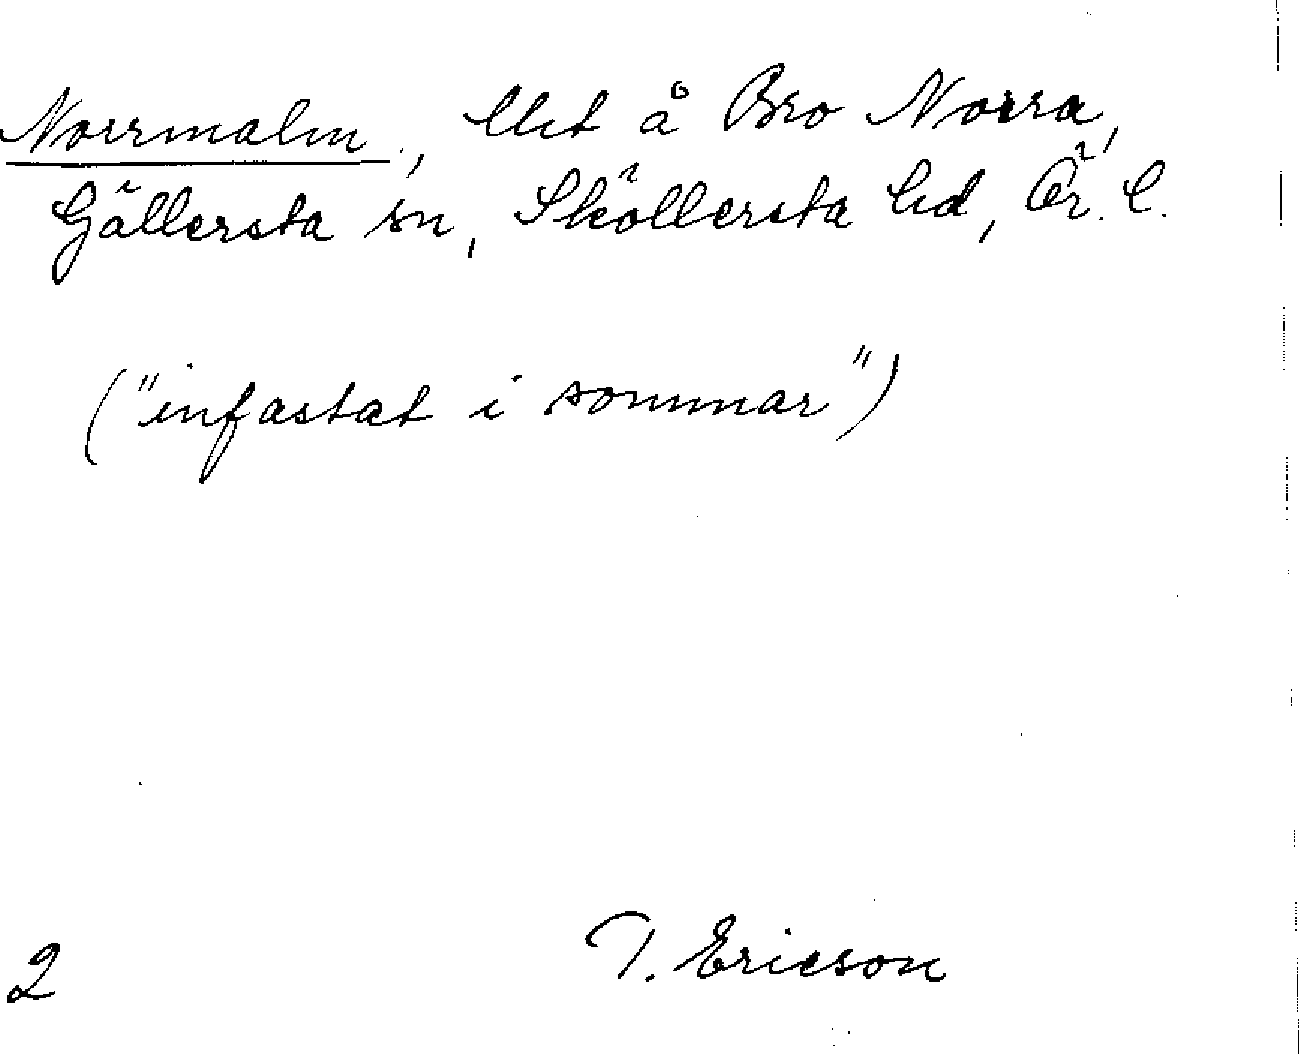 Norrmalm, lht å Bro Norra,
Gällersta sn, Sköllersta hd, Ör. l.
("infastat i sommar")
T. Ericson
2